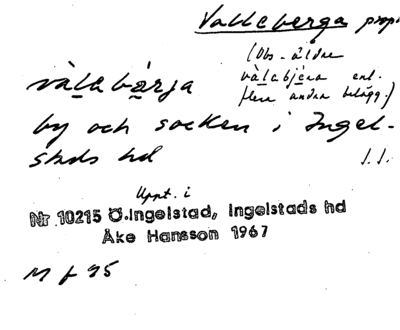 Valleberga prop.
(Obs. äldre
välabjära enl.
flera andra belägg.)
välabärja
by och socken i Ingel-
stads hd
I.I.
Uppt. i
Nr 10215 Ö.Ingelstad, Ingelstads hd
Åke Hansson 1967
M f 95